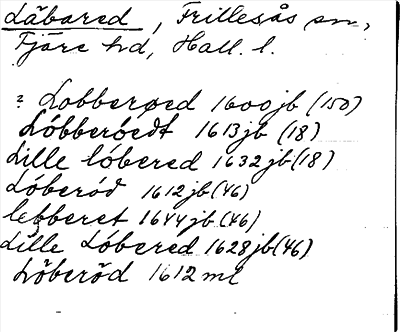 Låbared, Frillesås sn,
Fjäre hd, Hall. l.
? Lobberøed 1600 jb (150)
Lóbberóedt 1613 jb (18)
Lille lóbered 1632 jb (18)
Lóberód 1612 jb (46)
lebberet 1644 jb (46)
Lille Lóbered 1628 jb (46)
Lõberõd 1612 ml